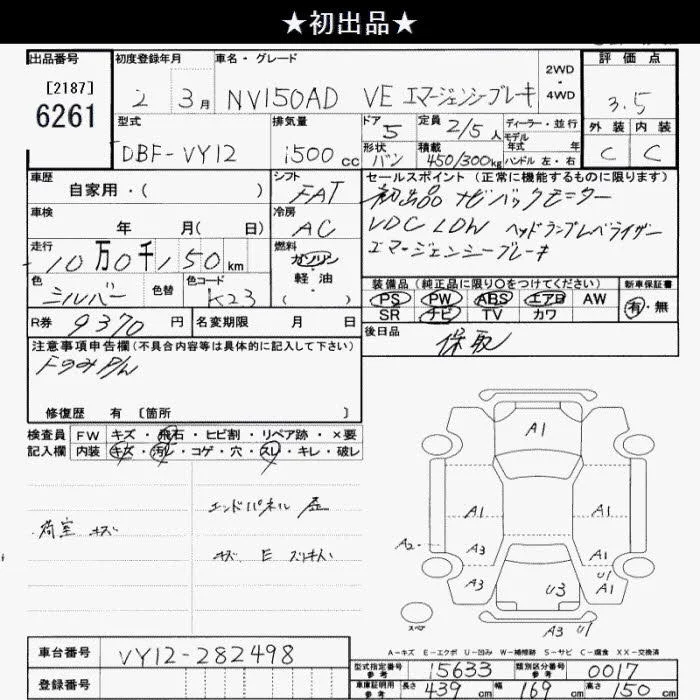 ★初出品★
出品番号 初度登録年月 車名・グレード 2WD・4WD 評価点
[2187]
6261
2 3月 NV150AD VE エマージェンシーブレーキ 3.5
型式 排気量 ドア 5 定員 2/5人 ディーラー・並行 外装 内装
モデル年式 年式
DBF-VY12 1500cc 形状 バン 積載 450/300kg ハンドル 左・右 C C
車歴 シフト セールスポイント (正常に機能するものに限ります)
自家用・( ) FAT 初出品 ナビ バックモニター
車検 冷房 VDC LDW ヘッドランプレベライザー
年 月( 日) AC エマージェンシーブレーキ
走行 燃料
10万0千150km ガソリン
軽油・( )
色 色替 色コード 装備品 (純正品に限り○をつけてください) 新車保証書
シルバー K23 PS PW ABS エアB AW 有・無
SR ナビ TV カワ
R券 9370円 名変期限 月 日 後日品
注意事項申告欄(不具合内容等は具体的に記入して下さい) 保取
P/W
修復歴 有 〔箇所 〕
検査員 FW キズ・飛石・ヒビ割・リペア跡・×要
記入欄 内装 キズ・汚レ・コゲ・穴・スレ・キレ・破レ
荷室 キズ
エンドパネル
キズ E
A1
A1 A1
A2 A3 A1
U1
A3 U3 A1
スペア
A3 U1
A-キズ E-エクボ U-凹み W-補修跡 S-サビ C-腐食 XX-交換済
車台番号 VY12-282498
登録番号
型式指定番号 参考 15633 類別区分番号 参考 0017
車庫証明用 参考 長さ 439cm 幅 169cm 高さ 150cm